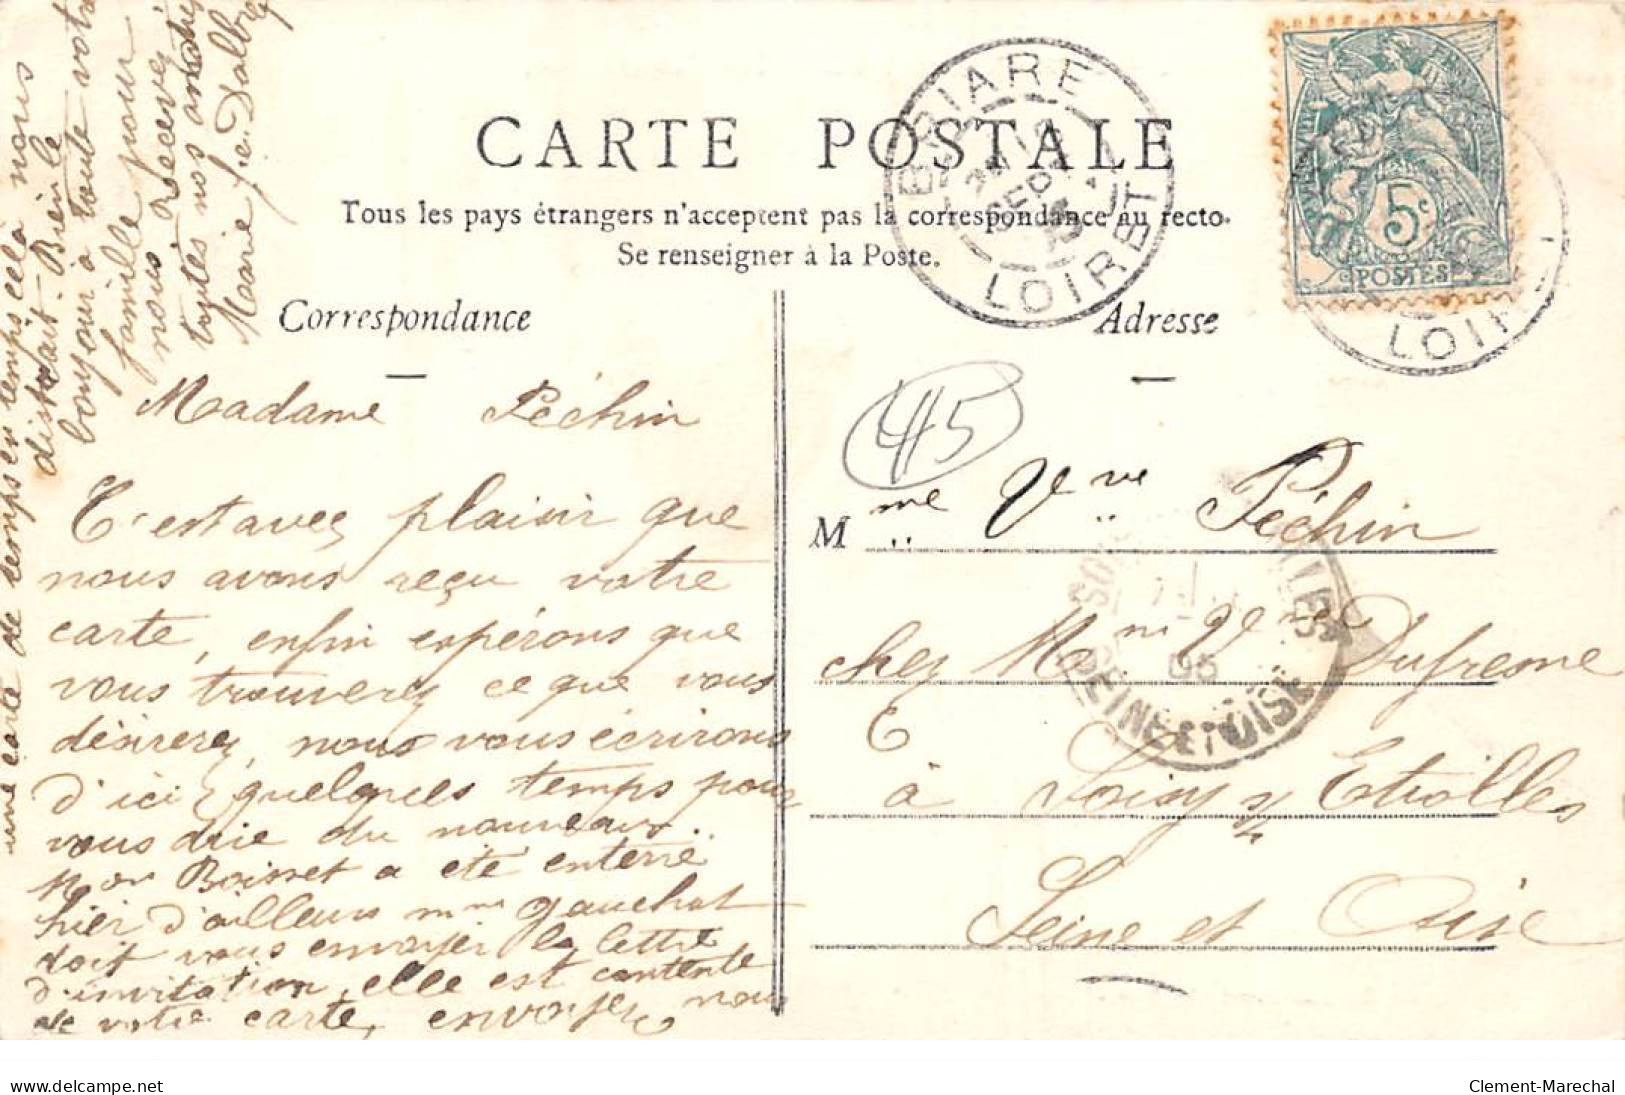 CARTE POSTALE
Tous les pays étrangers n'acceptent pas la correspondance au recto.
Se renseigner à la Poste.
Correspondance
Adresse
BRIARE
SEPT
LOIRET
5c
POSTES
LOIRET
45
Madame Péchin
C'est avec plaisir que
nous avons reçu votre
carte, enfin espérons que
vous trouverez ce que vous
désirerez, nous vous écrirons
d'ici quelques temps pour
vous dire du nouveau.
Mon Boisset a été enterré
hier d'ailleurs mme Gauchat
doit vous envoyer la lettre
d'invitation, elle est contente
de votre carte, envoyez nous
une carte de temps en temps cela nous
distrait. Bien le
bonjour à toute votre
famille pour
nous Recevez
toutes nos amitiés
Marie
Mme Vve Péchin
chez Mme Vve Dufresne
à Soisy s/ Etiolles
Seine et Oise
SEINE ET OISE
05
delcampe.net
Clement-Marechal